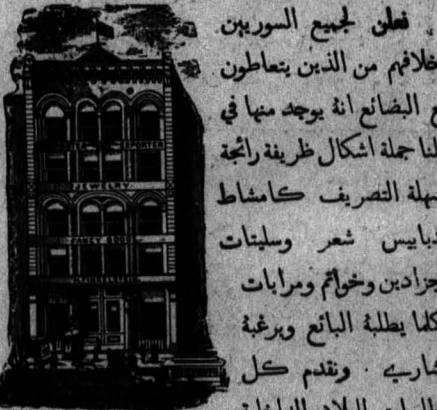 نعلن لجميع السوريين
خلافهم من الذين يتعاطون
البضائع انهُ يوجد منها في
جملة اشكال ظريفة رائجة
سهلة التصريف كامشاط
دبابيس شعر وسليتات
جزادين وخواتم ومرايات
كلما يطلبهُ البائع ويرغبهُ
ونقدم كل
IMPORTER
JEWELRY
FANCY GOODS